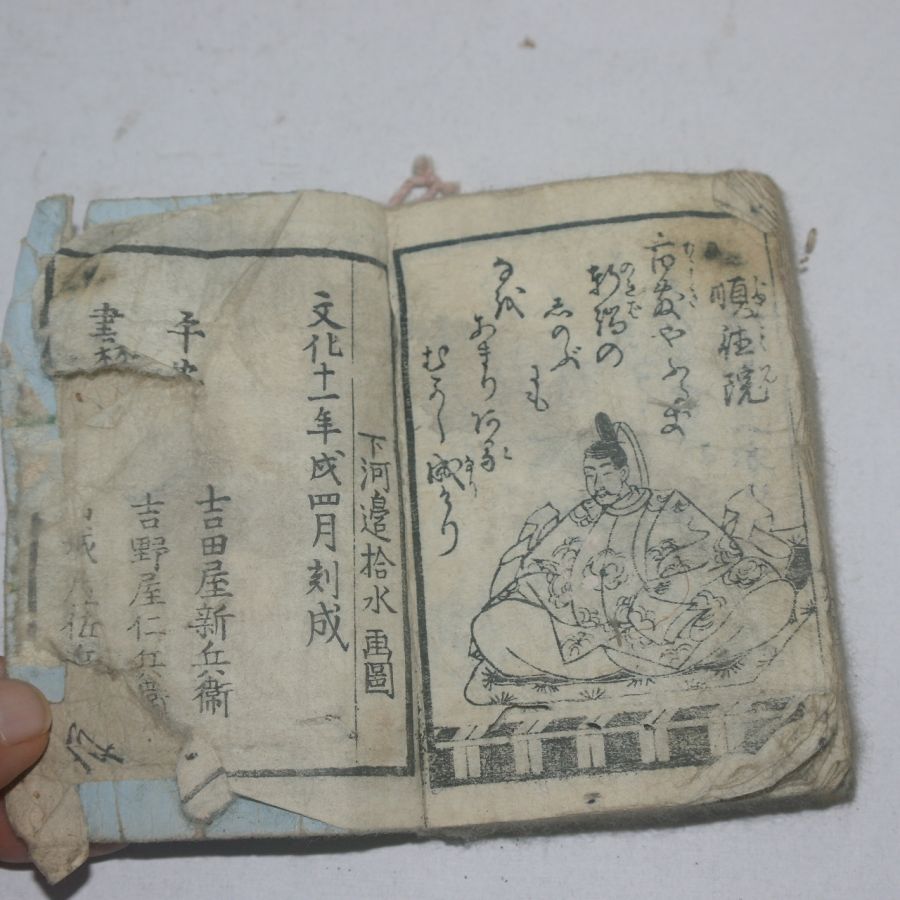 順徳院
百敷やふるき
軒端の
しのぶ
にも
なを
あまりある
むかし成けり
下河邉拾水画圖
文化十一年戌四月刻成
吉田屋新兵衛
平
吉野屋仁兵衛
書林